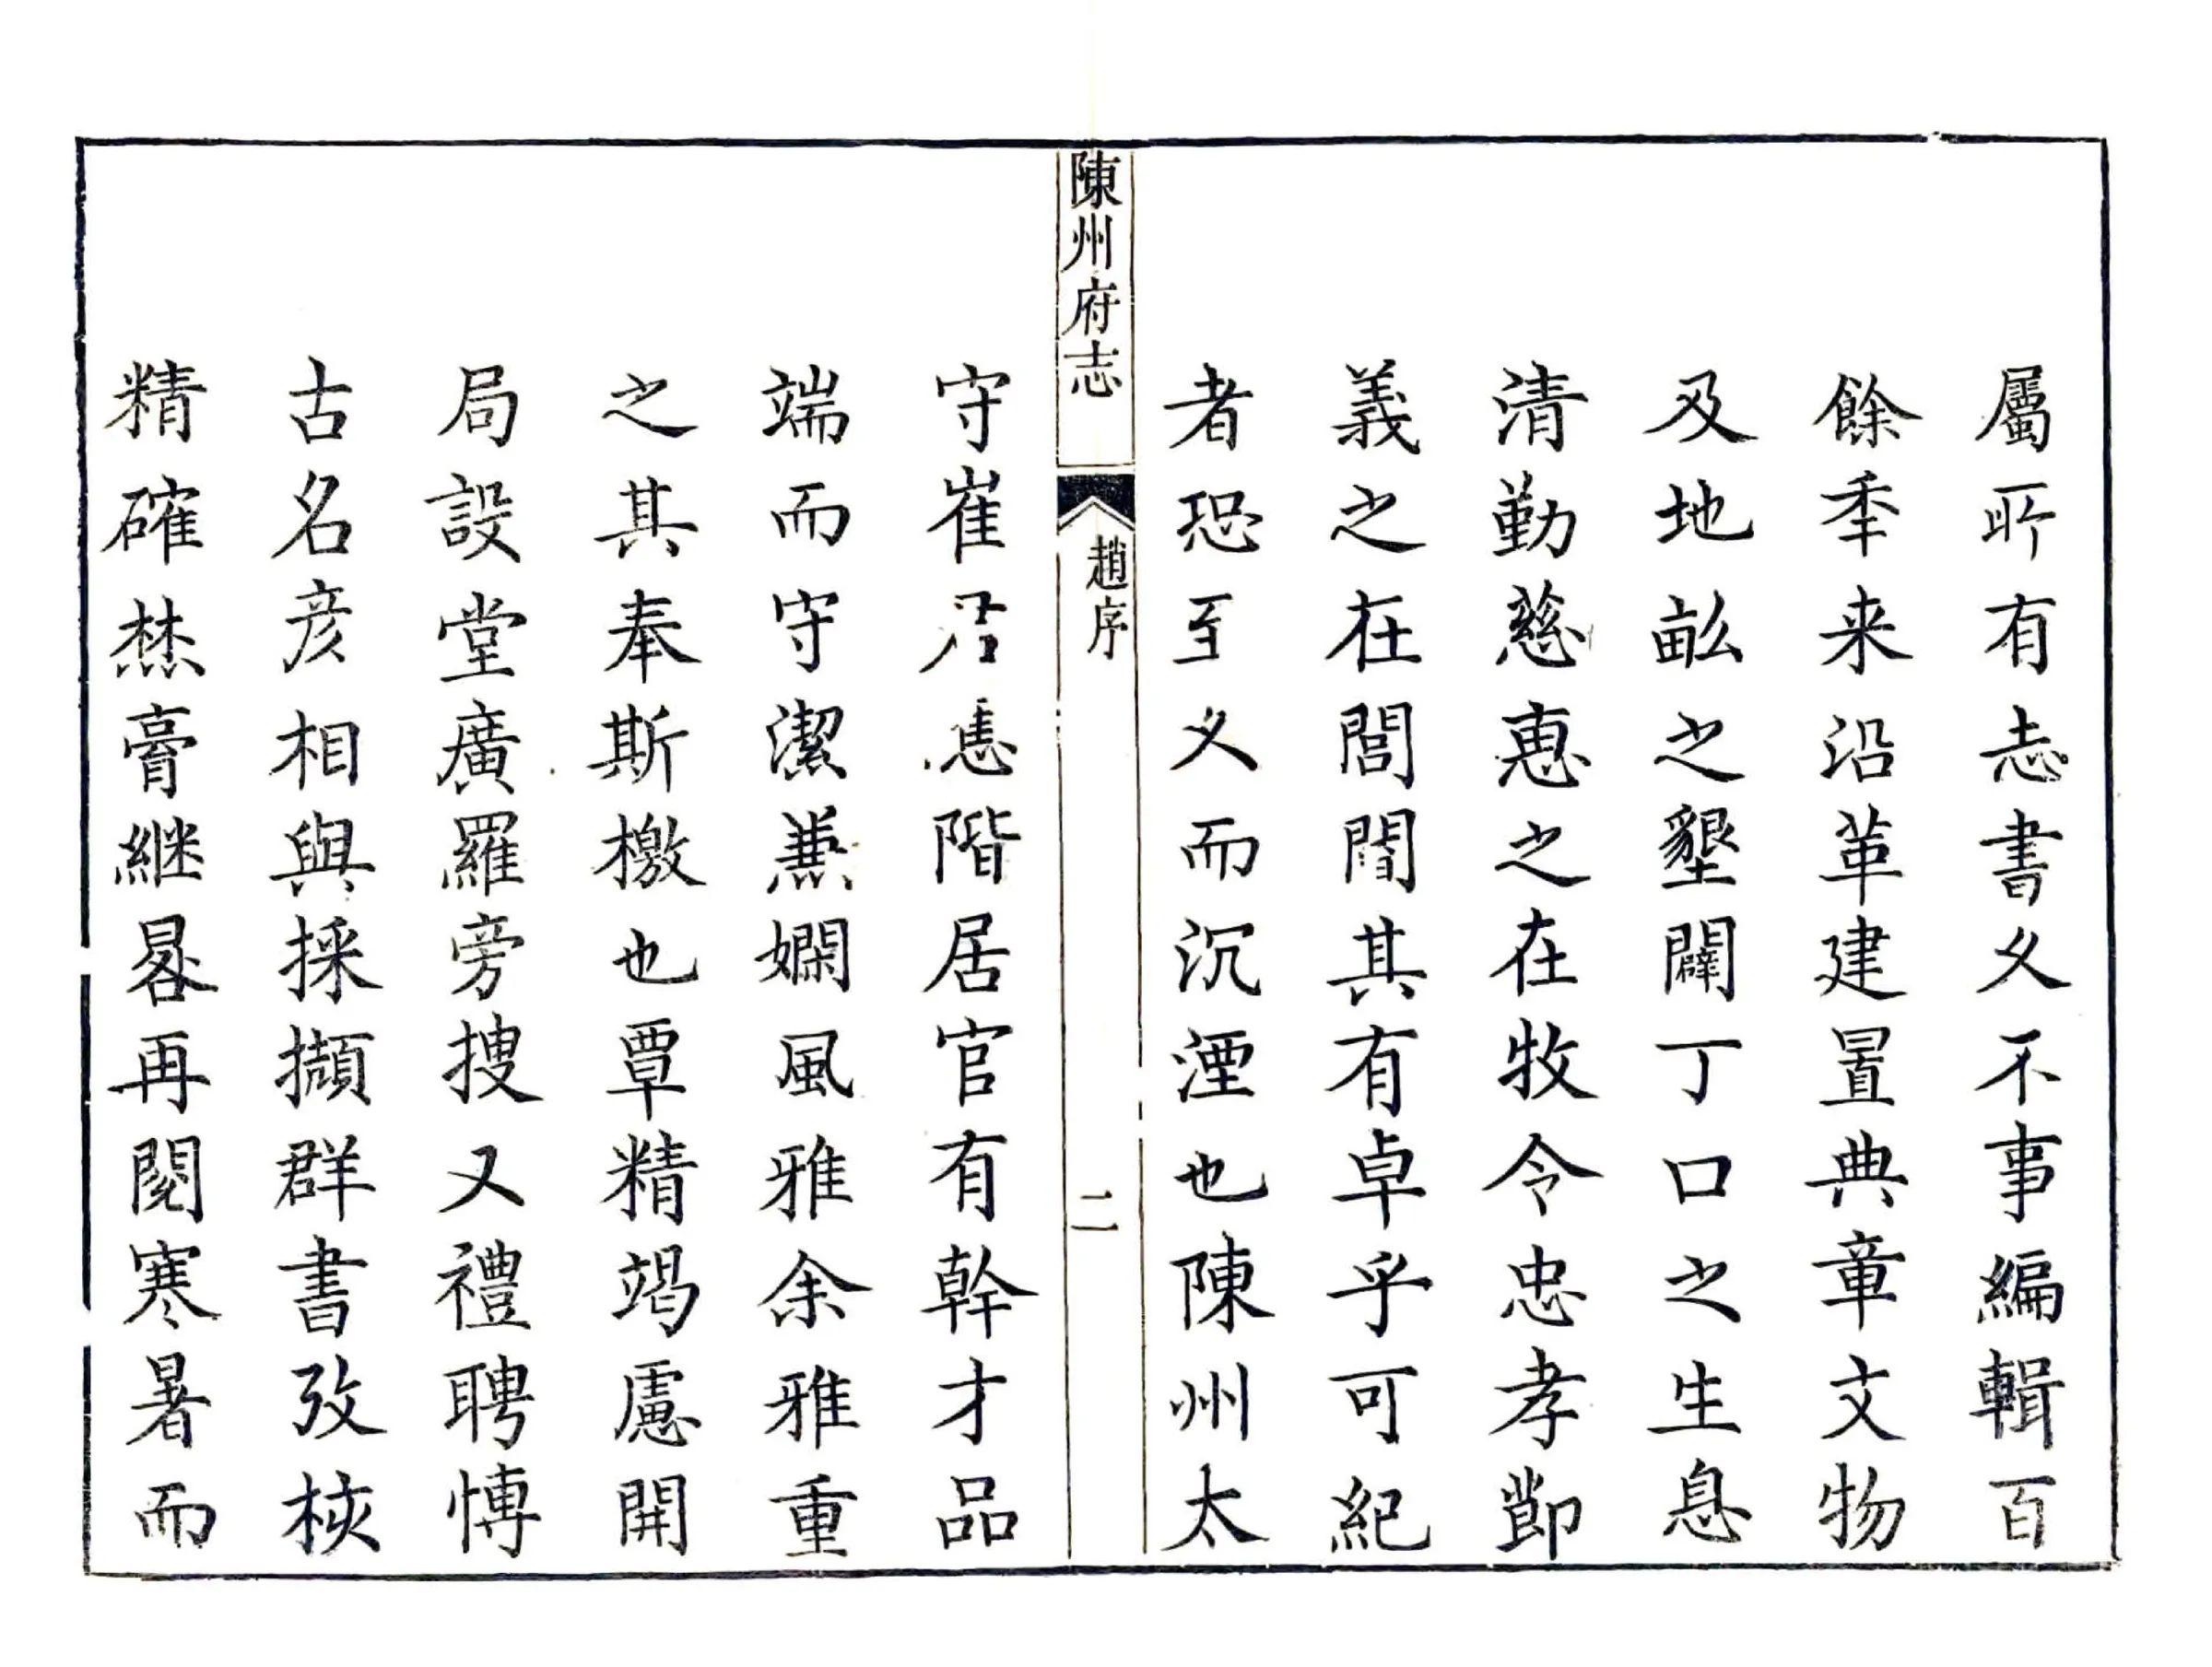 屬所有志書久不事編輯百
餘秊来沿革建置典章文物
及地畝之墾闢丁口之生息
清勤慈惠之在牧令忠孝節
義之在閭閻其有卓乎可紀
者恐至久而沉湮也陳州太
陳州府志
趙序
二
守崔君應階居官有幹才品
端而守潔兼嫻風雅余雅重
之其奉斯檄也覃精竭慮開
局設堂廣羅旁搜又禮聘博
古名彥相與採擷群書攷核
精確焚膏継晷再閱寒暑而